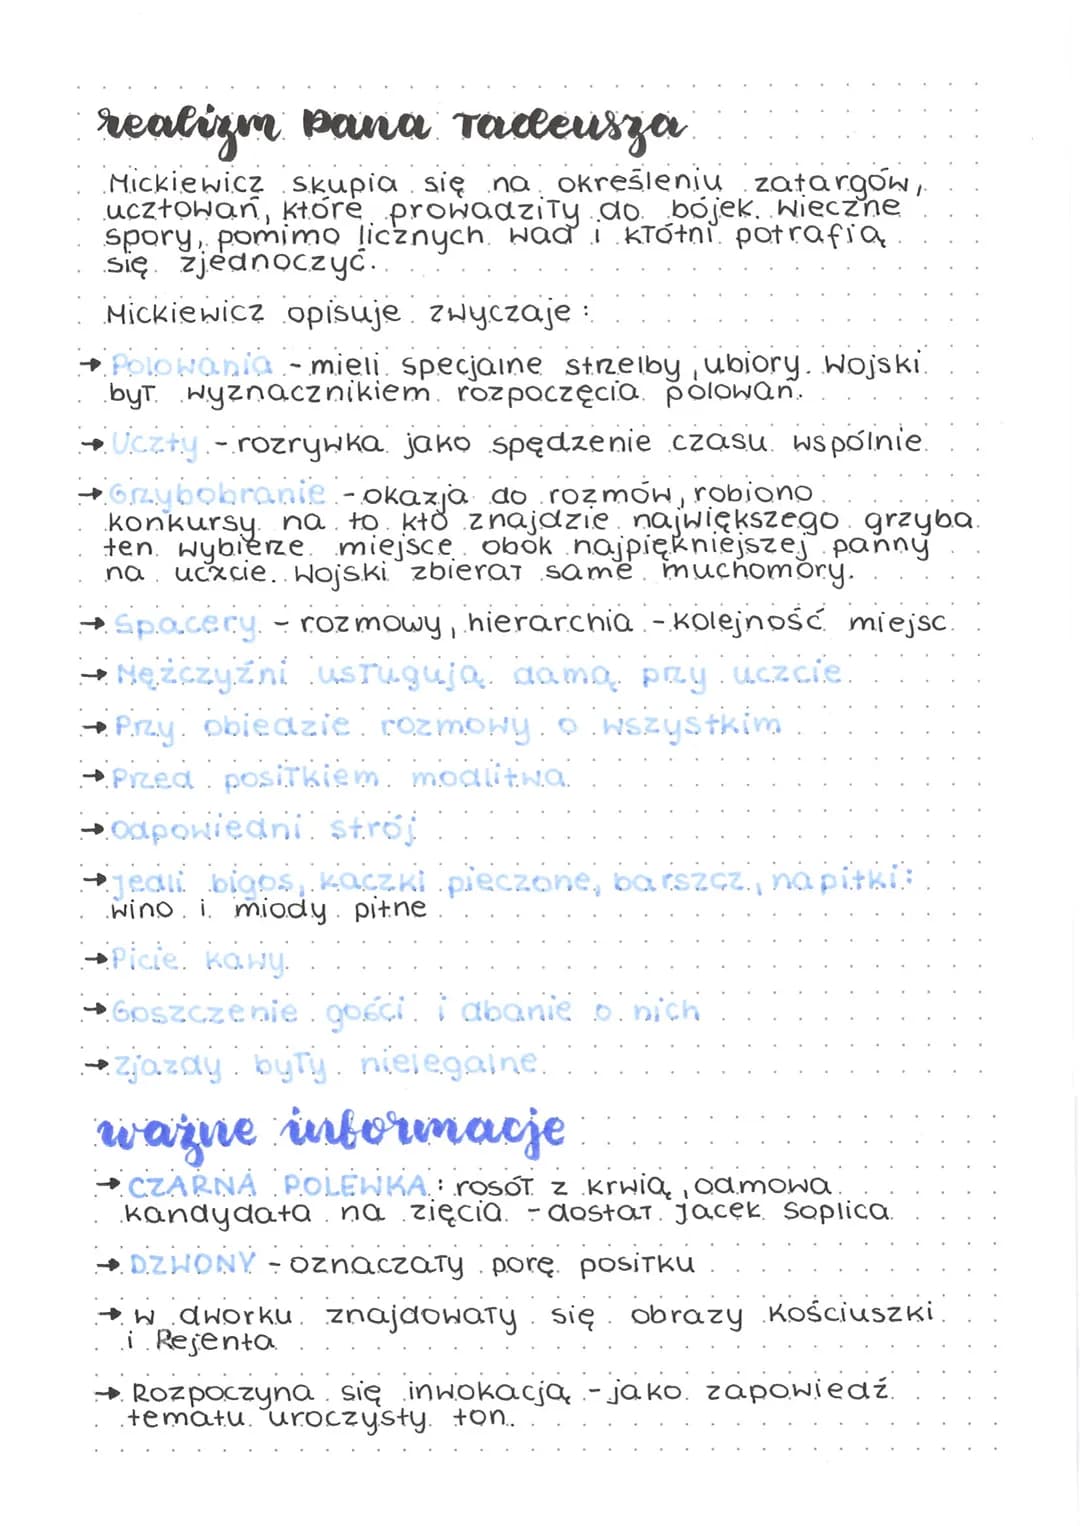 realizm Pana Tadeusza
Mickiewicz skupia się na określeniu zatargów,
ucztowań, które prowadziły do bójek. Wieczne
spory, pomimo licznych wad i kłótni potrafią
się zjednoczyć.
Mickiewicz opisuje zwyczaje:
→ Polowania - mieli specjalne strzelby, ubiory. Wojski
był wyznacznikiem rozpoczęcia polowań.
→ Uczty - rozrywka jako spędzenie czasu wspólnie.
→ Grzybobranie - okazja do rozmów, robiono
konkursy na to kto znajdzie największego grzyba
ten wybierze miejsce obok najpiękniejszej panny
na uczcie. Wojski zbierał same muchomory.
→ Spacery - rozmowy, hierarchia - kolejność miejsc.
→ Mężczyźni usługują damą przy uczcie.
→ Przy obiedzie rozmowy o wszystkim
→ Przed posiłkiem modlitwa
→ Odpowiedni strój
→ jedli bigos, kaczki pieczone, barszcz, napitki:
wino i miody pitne
→ Picie kawy.
→ Goszczenie gości i dbanie o nich
→ Zjazdy były nielegalne.
ważne informacje
→ CZARNA POLEWKA: rosół z krwią, odmowa
kandydata na zięcia. - dostał Jacek Soplica
→ DZWONY - oznaczały porę posiłku
→ W dworku znajdowały się obrazy Kościuszki
i Rejenta
→ Rozpoczyna się inwokacją - jako zapowiedź
tematu uroczysty ton.